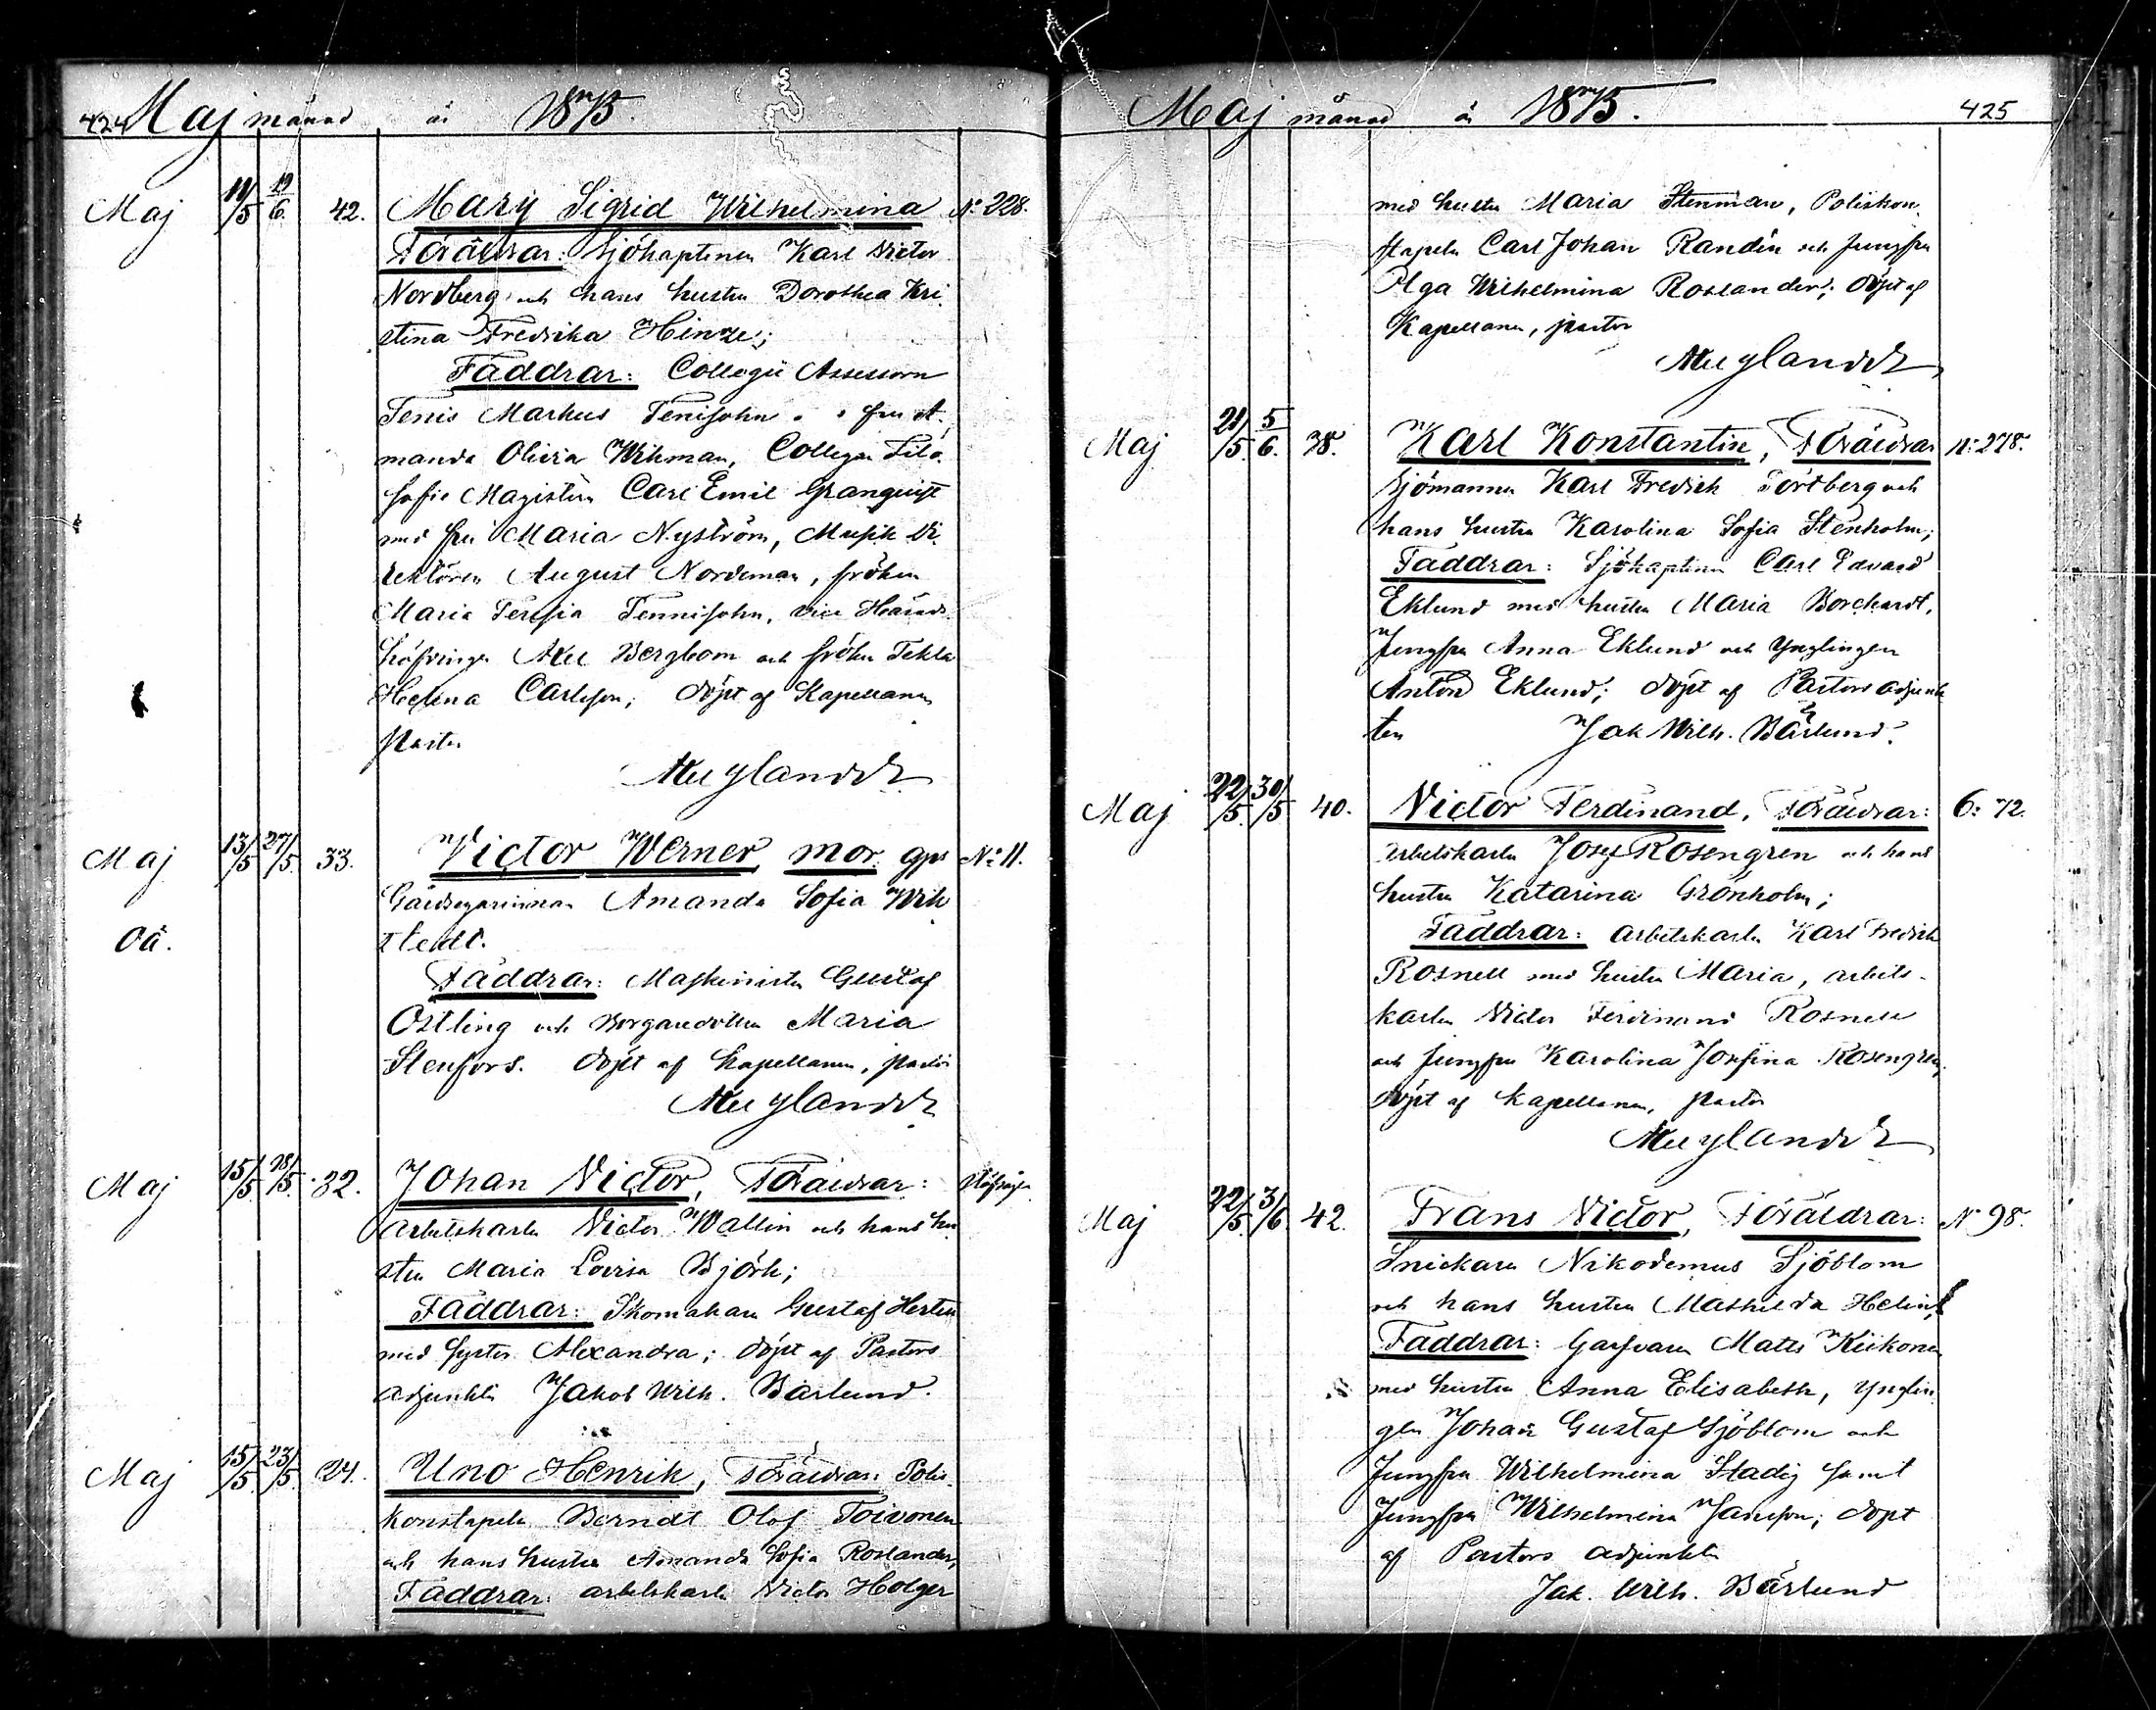 424 Maj månad år 1875.
Maj 11/5 19/6. 42. Mary Sigrid Wilhelmina N: 228.
Föräldrar: Sjökaptenen Karl Victor
Nordberg och hans hustru Dorothea Kri
stina Fredrika Hinze;
Faddrar: Collegii Assessorn
Tenis Markus Tenisohn fru A
manda Olivia Wikman, Collegan Filo
sofie Magistern Carl Emil Granquist
med fru Maria Nyström, Musik Di
rektören August Nordeman, fröken
Maria Teresia Tennisohn, vice Härads
höfdingen Axel Bergbom och fröken Tekla
Helena Carlsson; döpt af Kapellanen
pastor
Axel Ylander
Maj 13/5 27/5. 33. Victor Werner, mor: gps N: 11.
Gårdsegarinnan Amanda Sofia Wik
stedt.
Oä.
Faddrar: Maskinisten Gustaf
Östling och Borgaredottern Maria
Stenfors. döpt af Kapellanen, pastor
Axel Ylander
Maj 15/5 28/5. 32. Johan Victor, Föräldrar:
arbetskarlen Victor Wallin och hans hu
stru Maria Lovisa Björk;
Faddrar: Skomakaren Gustaf Hertén
med syster Alexandra; döpt af Pastors
adjunkten Jakob Wilh. Bärlund.
Maj 15/5 23/5. 24. Uno Henrik, Föräldrar: Polis
konstapeln Berndt Olof Toivonen
och hans hustru Amanda Sofia Roslander,
Faddrar: arbetskarlen Victor Holger
Maj månad år 1875. 425
med hustru Maria Stenman, Poliskon
stapeln Carl Johan Randén och Jungfru
Olga Wilhelmina Roslander; döpt af
Kapellanen, pastor
Axel Ylander
Maj 21/5. 5/6. 38. Karl Konstantin, Föräldrar N: 278.
Sjömannen Karl Fredrik Törtberg och
hans hustru Karolina Sofia Stenholm;
Faddrar: Sjökaptenen Carl Edvard
Eklund med hustru Maria Borchardt,
Jungfru Anna Eklund och Ynglingen
Anton Eklund; döpt af Pastors adjunk
ten Jak Wilh. Bärlund.
Maj 22/5. 30/5 40. Victor Ferdinand, Föräldrar: 6: 72.
arbetskarlen Josef Rosengren och hans
hustru Katarina Grönholm;
Faddrar: arbetskarlen Karl Fredrik
Rosnell med hustru Maria, arbets-
karlen Victor Ferdinand Rosnell
och Jungfru Karolina Josefina Rosengren,
döpt af Kapellanen, pastor
Axel Ylander
Maj 22/5. 3/6 42. Frans Victor, Föräldrar: N 98.
Snickaren Nikodemus Sjöblom
och hans hustru Mathilda Helin;
Faddrar: Garfvaren Matts Kiikonen
med hustru Anna Elisabeth, Ynglin
gen Johan Gustaf Sjöblom och
Jungfru Wilhelmina Stadig samt
Jungfru Wilhelmina Jansson; döpt
af Pastors adjunkten
Jak. Wilh. Bärlund